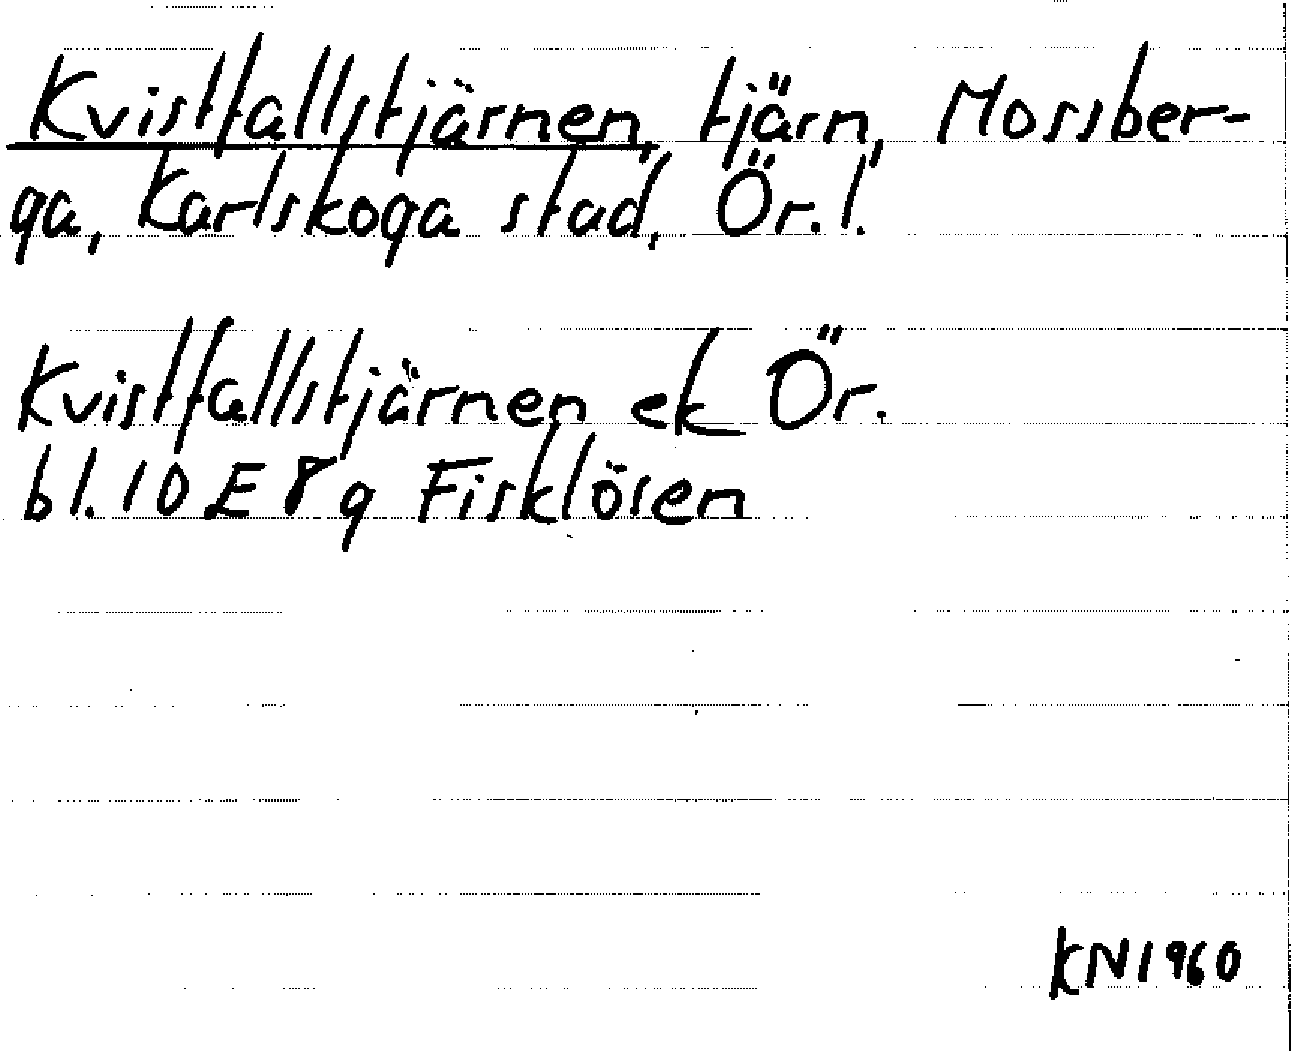 Kvistfallstjärnen, tjärn, Mossber-
ga, Karlskoga stad, Ör. l.
Kvistfallstjärnen ek Ör.
bl. 10 E 8 g Fisklösen
KN 1960